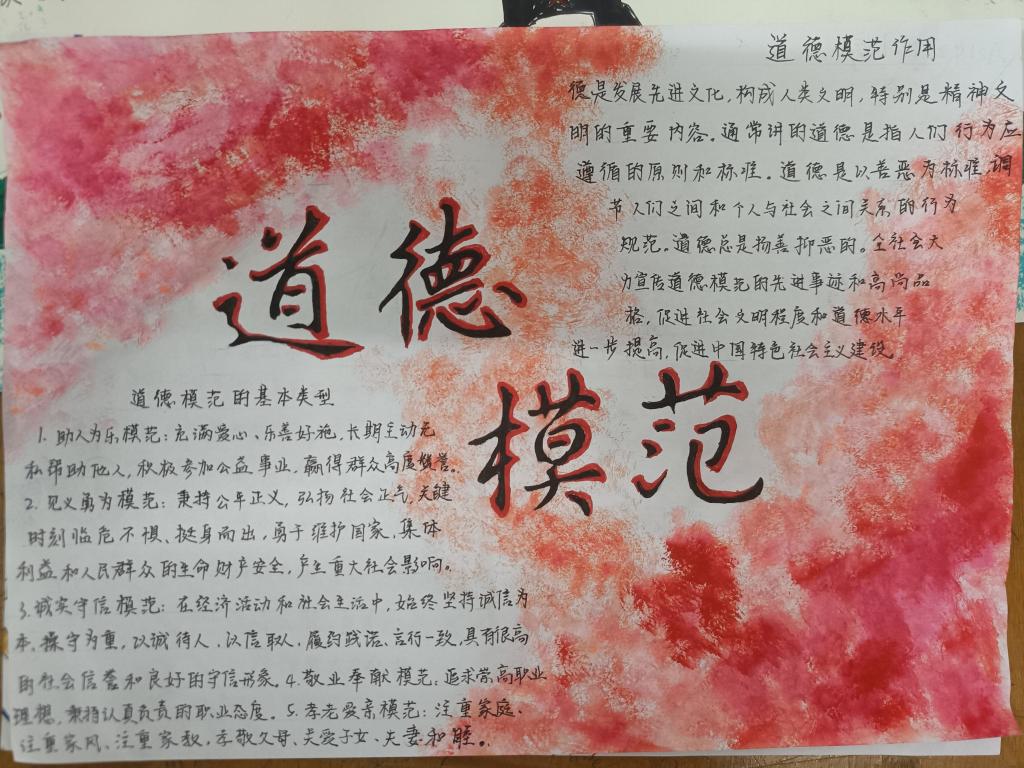 道德模范作用
德是发展先进文化,构成人类文明,特别是精神文
明的重要内容。通常讲的道德是指人们行为应
遵循的原则和标准。道德是以善恶为标准,调
节人们之间和个人与社会之间关系的行为
规范。道德总是扬善抑恶的。全社会大
力宣传道德模范的先进事迹和高尚品
格,促进社会文明程度和道德水平
进一步提高,促进中国特色社会主义建设
道德
模范
道德模范的基本类型
1. 助人为乐模范:充满爱心、乐善好施,长期主动无
私帮助他人,积极参加公益事业,赢得群众高度赞誉。
2. 见义勇为模范:秉持公平正义,弘扬社会正气,关键
时刻临危不惧、挺身而出,勇于维护国家、集体
利益和人民群众的生命财产安全,产生重大社会影响。
3. 诚实守信模范:在经济活动和社会生活中,始终坚持诚信为
本,操守为重,以诚待人,以信取人,履约践诺、言行一致,具有很高
的社会信誉和良好的守信形象。4. 敬业奉献模范:追求崇高职业
理想,秉持认真负责的职业态度。5. 孝老爱亲模范:注重家庭、
注重家风、注重家教,孝敬父母、关爱子女、夫妻和睦。